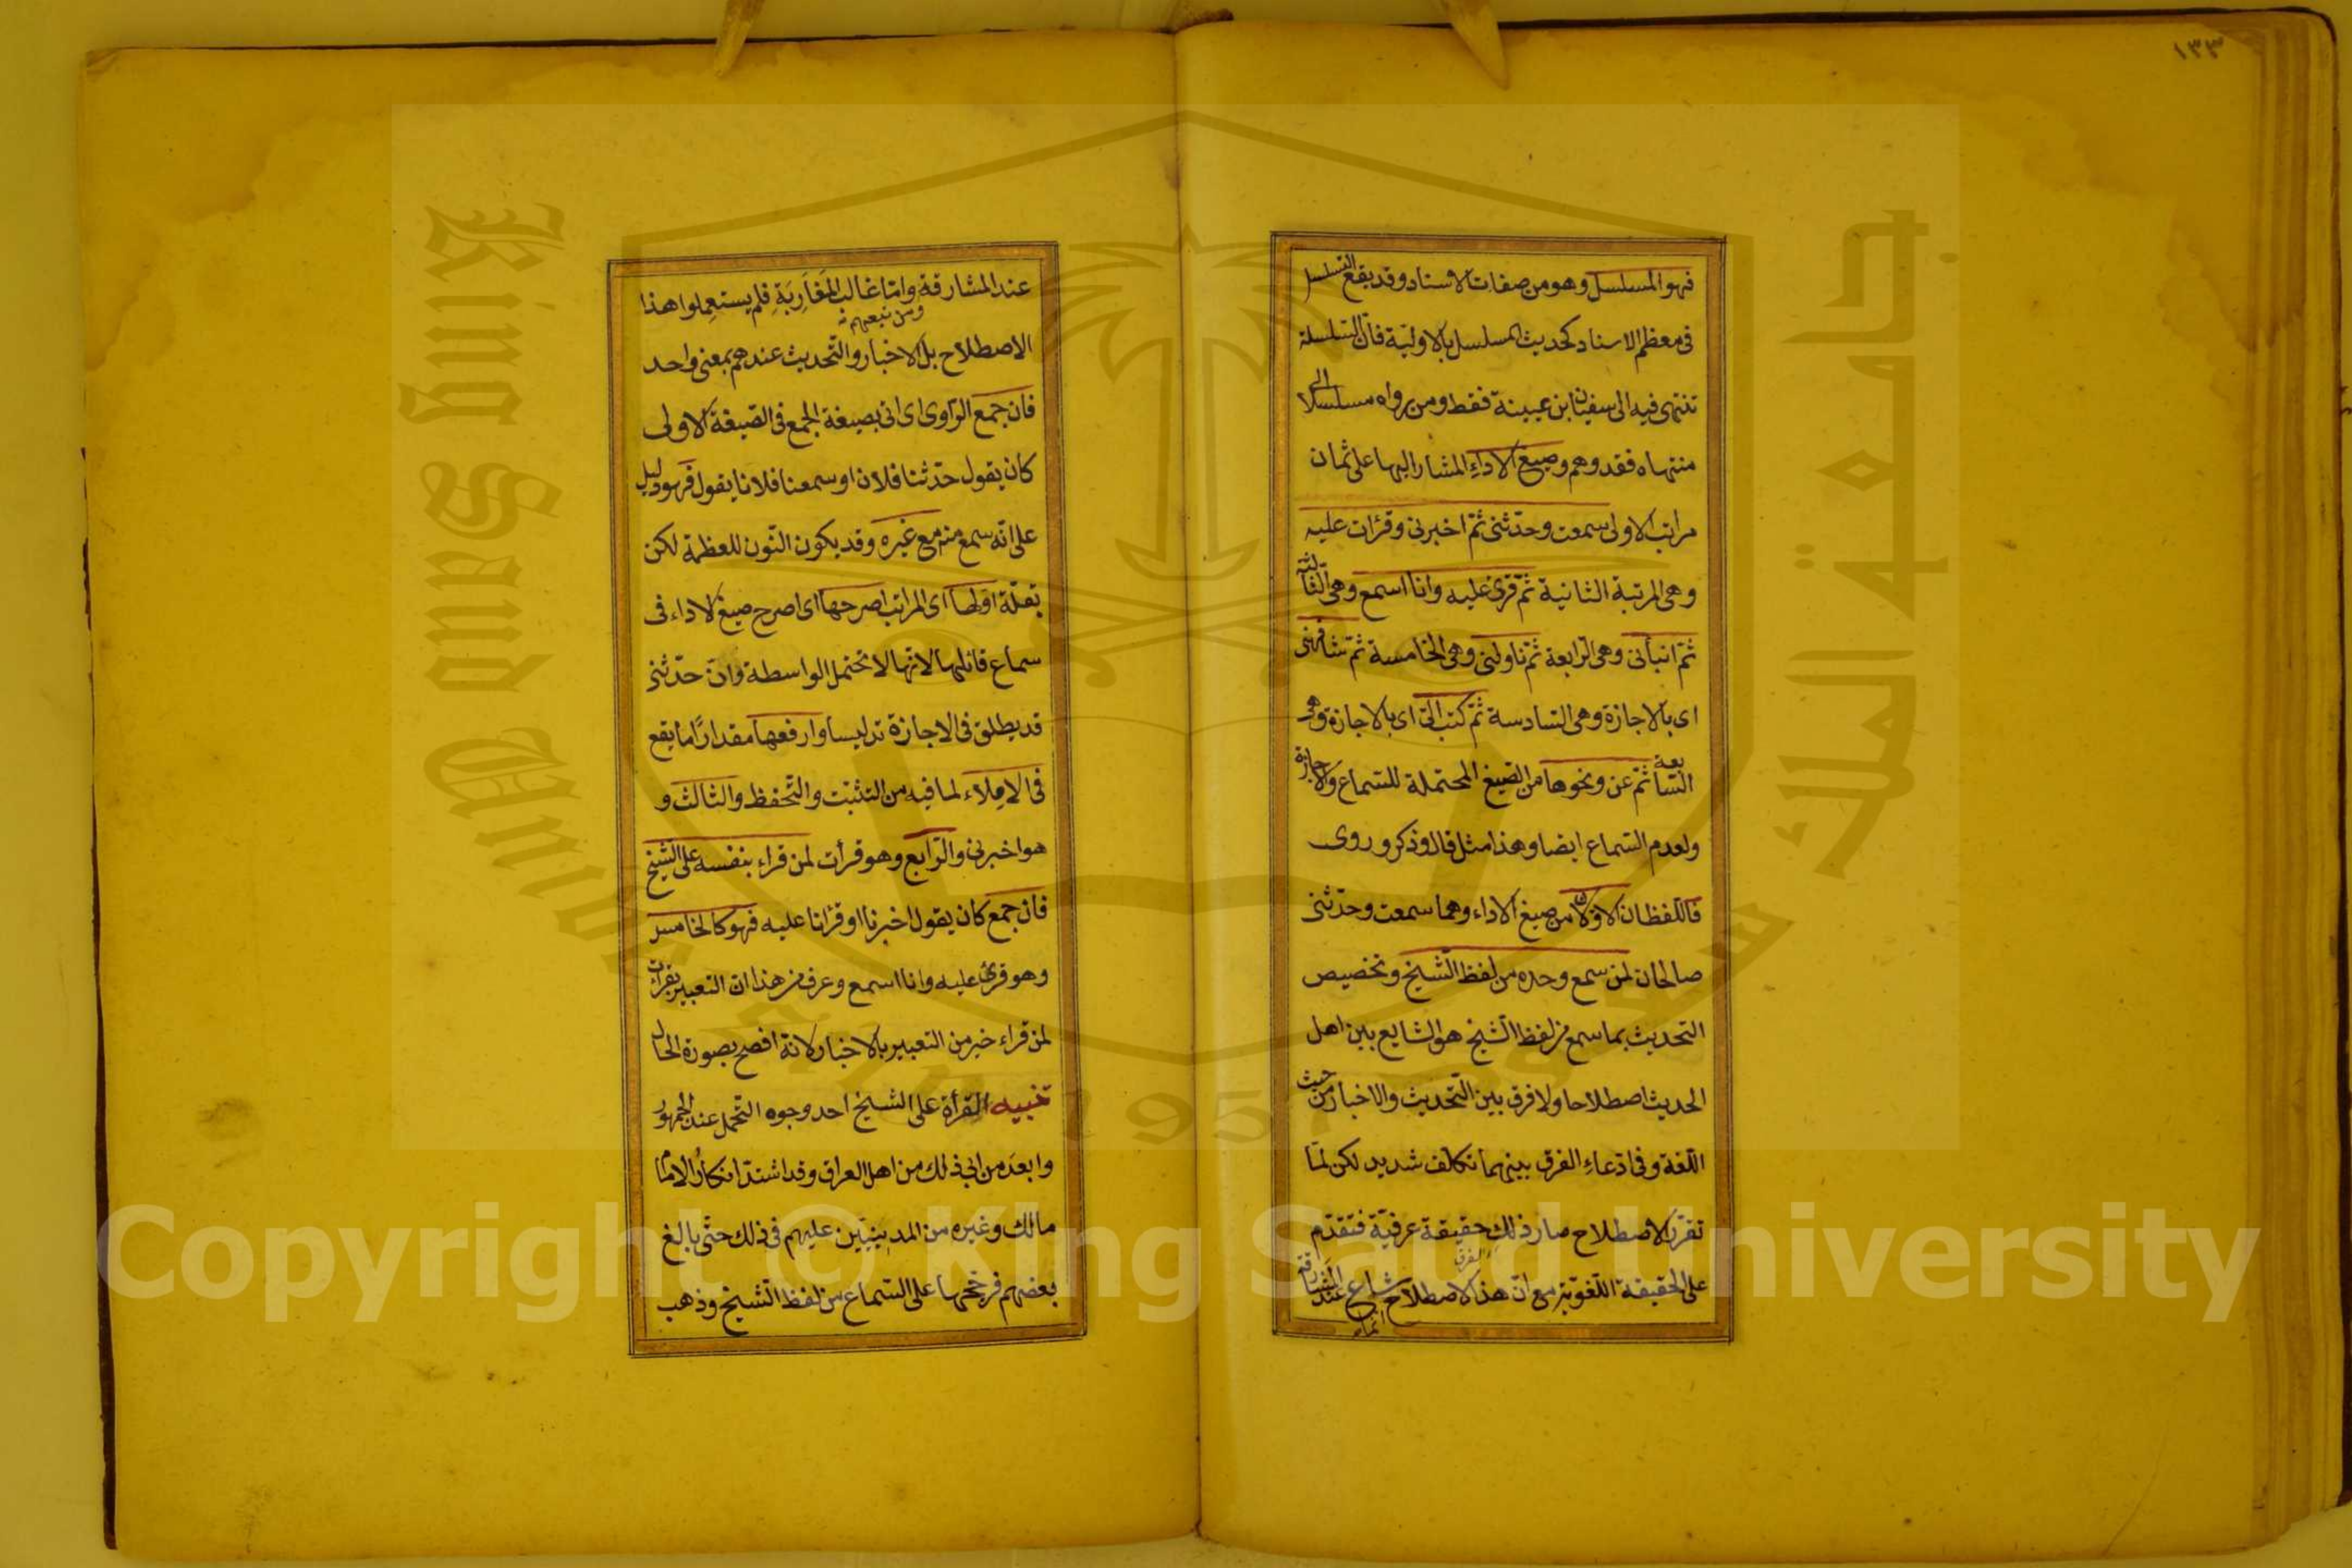 ١٣٣
فهو المسلسل وهو من صفات الاسناد وقد يقع التسلسل
فى معظم الاسناد كحديث المسلسل بالاوليّة فان السلسلة
تنتهى فيه الى سفيان ابن عيينة فقط ومن رواه مسلسلا الى
منتهاه فقد وهم وصيغ الاداءِ المشار اليها على ثمان
مراتب الاولى سمعت وحدّثنى ثمّ اخبرنى وقرأت عليه
وهى المرتبة الثانية ثمّ قرئ عليه وانا اسمع وهى الثّالثة
ثمّ انبأنى وهى الرّابعة ثمّ ناولنى وهى الخامسة ثمّ شافهنى
اى بالاجازة وهى السّادسة ثمّ كتب الىّ اى بالاجازة وهى
السّابعة ثمّ عن ونحوها من الصّيغ المحتملة للسّماع والاجازة
ولعدم السّماع ايضا وهذا مثل قال وذكر وروى
فاللّفظان الاوّلان من صيغ الاداء وهما سمعت وحدّثنى
صالحان لمن سمع وحده من لفظ الشّيخ وتخصيص
التحديث بما سمع من لفظ الشّيخ هو الشايع بين اهل
الحديث اصطلاحا ولا فرق بين التّحديث والاخبار من حيث
اللّغة وفى ادّعاءِ الفرق بينهما تكلّف شديد لكن لمّا
تقرّر الاصطلاح صار ذلك حقيقة عرفيّة فتقدّم
على الحقيقة اللّغويّة مع انّ هذا الاصطلاح انما شاع عند المشارقة
عند المشارقة وامّا غالب المَغَارِبَةِ فلم يستعمِلوا هذا
ومن تبعهم
الاصطلاح بل الاخبار والتّحديث عندهم بمعنى واحد
فان جمع الرّاوى اى اتى بصيغة الجمع فى الصّيغة الاولى
كان يقول حدّثنا فلان او سمعنا فلانا يقول فهو دليل
على انّه سمع منه مع غيره وقد يكون النّون للعظمة لكن
بقلّة اوّلها اى المراتب اصرحها اى اصرح صيغ الاداء فى
سماع قائلها لانّها لا تحتمل الواسطة وانّ حدّثنى
قد يطلق فى الاجازة تدليسا وارفعها مقدارًا ما يقع
فى الامِلاء لما فيه من التثبّت والتّحفظ والثالث و
هو اخبرنى والرّابع وهو قرأت لمن قراء بنفسه على الشّيخ
فان جمع كان يقول اخبرنا او قرأنا عليه فهو كالخامس
وهو قرئ عليه وانا اسمع وعرف من هذا انّ التعبير بقرأت
لمن قراء خير من التعبير بالاخبار لانّه افصح بصورة الحال
تنبيه القرأة على الشيخ احد وجوه التّحمل عند الجمهور
وابعدَ من ابى ذلك من اهل العراق وقد اشتدّ انكارُ الامام
مالك وغيره من المدينيّين عليهم فى ذلك حتّى بالغ
بعضهم فرجّحها على السّماع من لفظ الشّيخ وذهب
King Saud University
جامعة الملك سعود
1957
Copyright © King Saud University